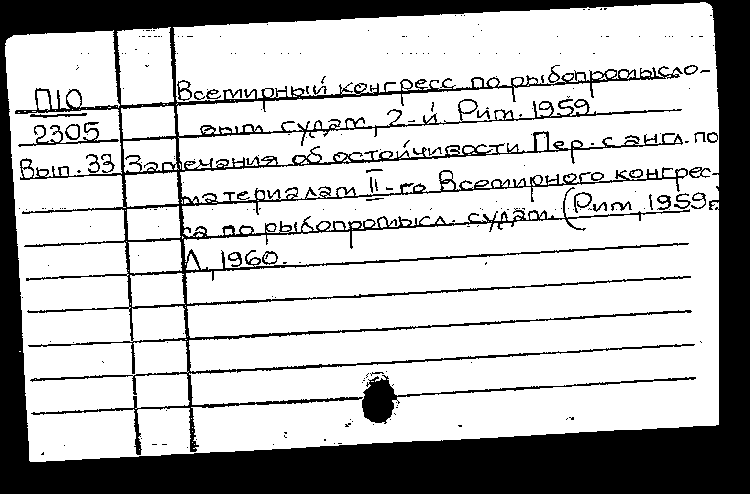 П10 Всемирный конгресс по рыбопромысло-
2305 вым судам, 2-й. Рим. 1959.
Вып. 33 Замечания об остойчивости. Пер. с англ. по
материалам II-го Всемирного конгрес-
са по рыбопромысл. судам. (Рим, 1959 г.
Л., 1960.